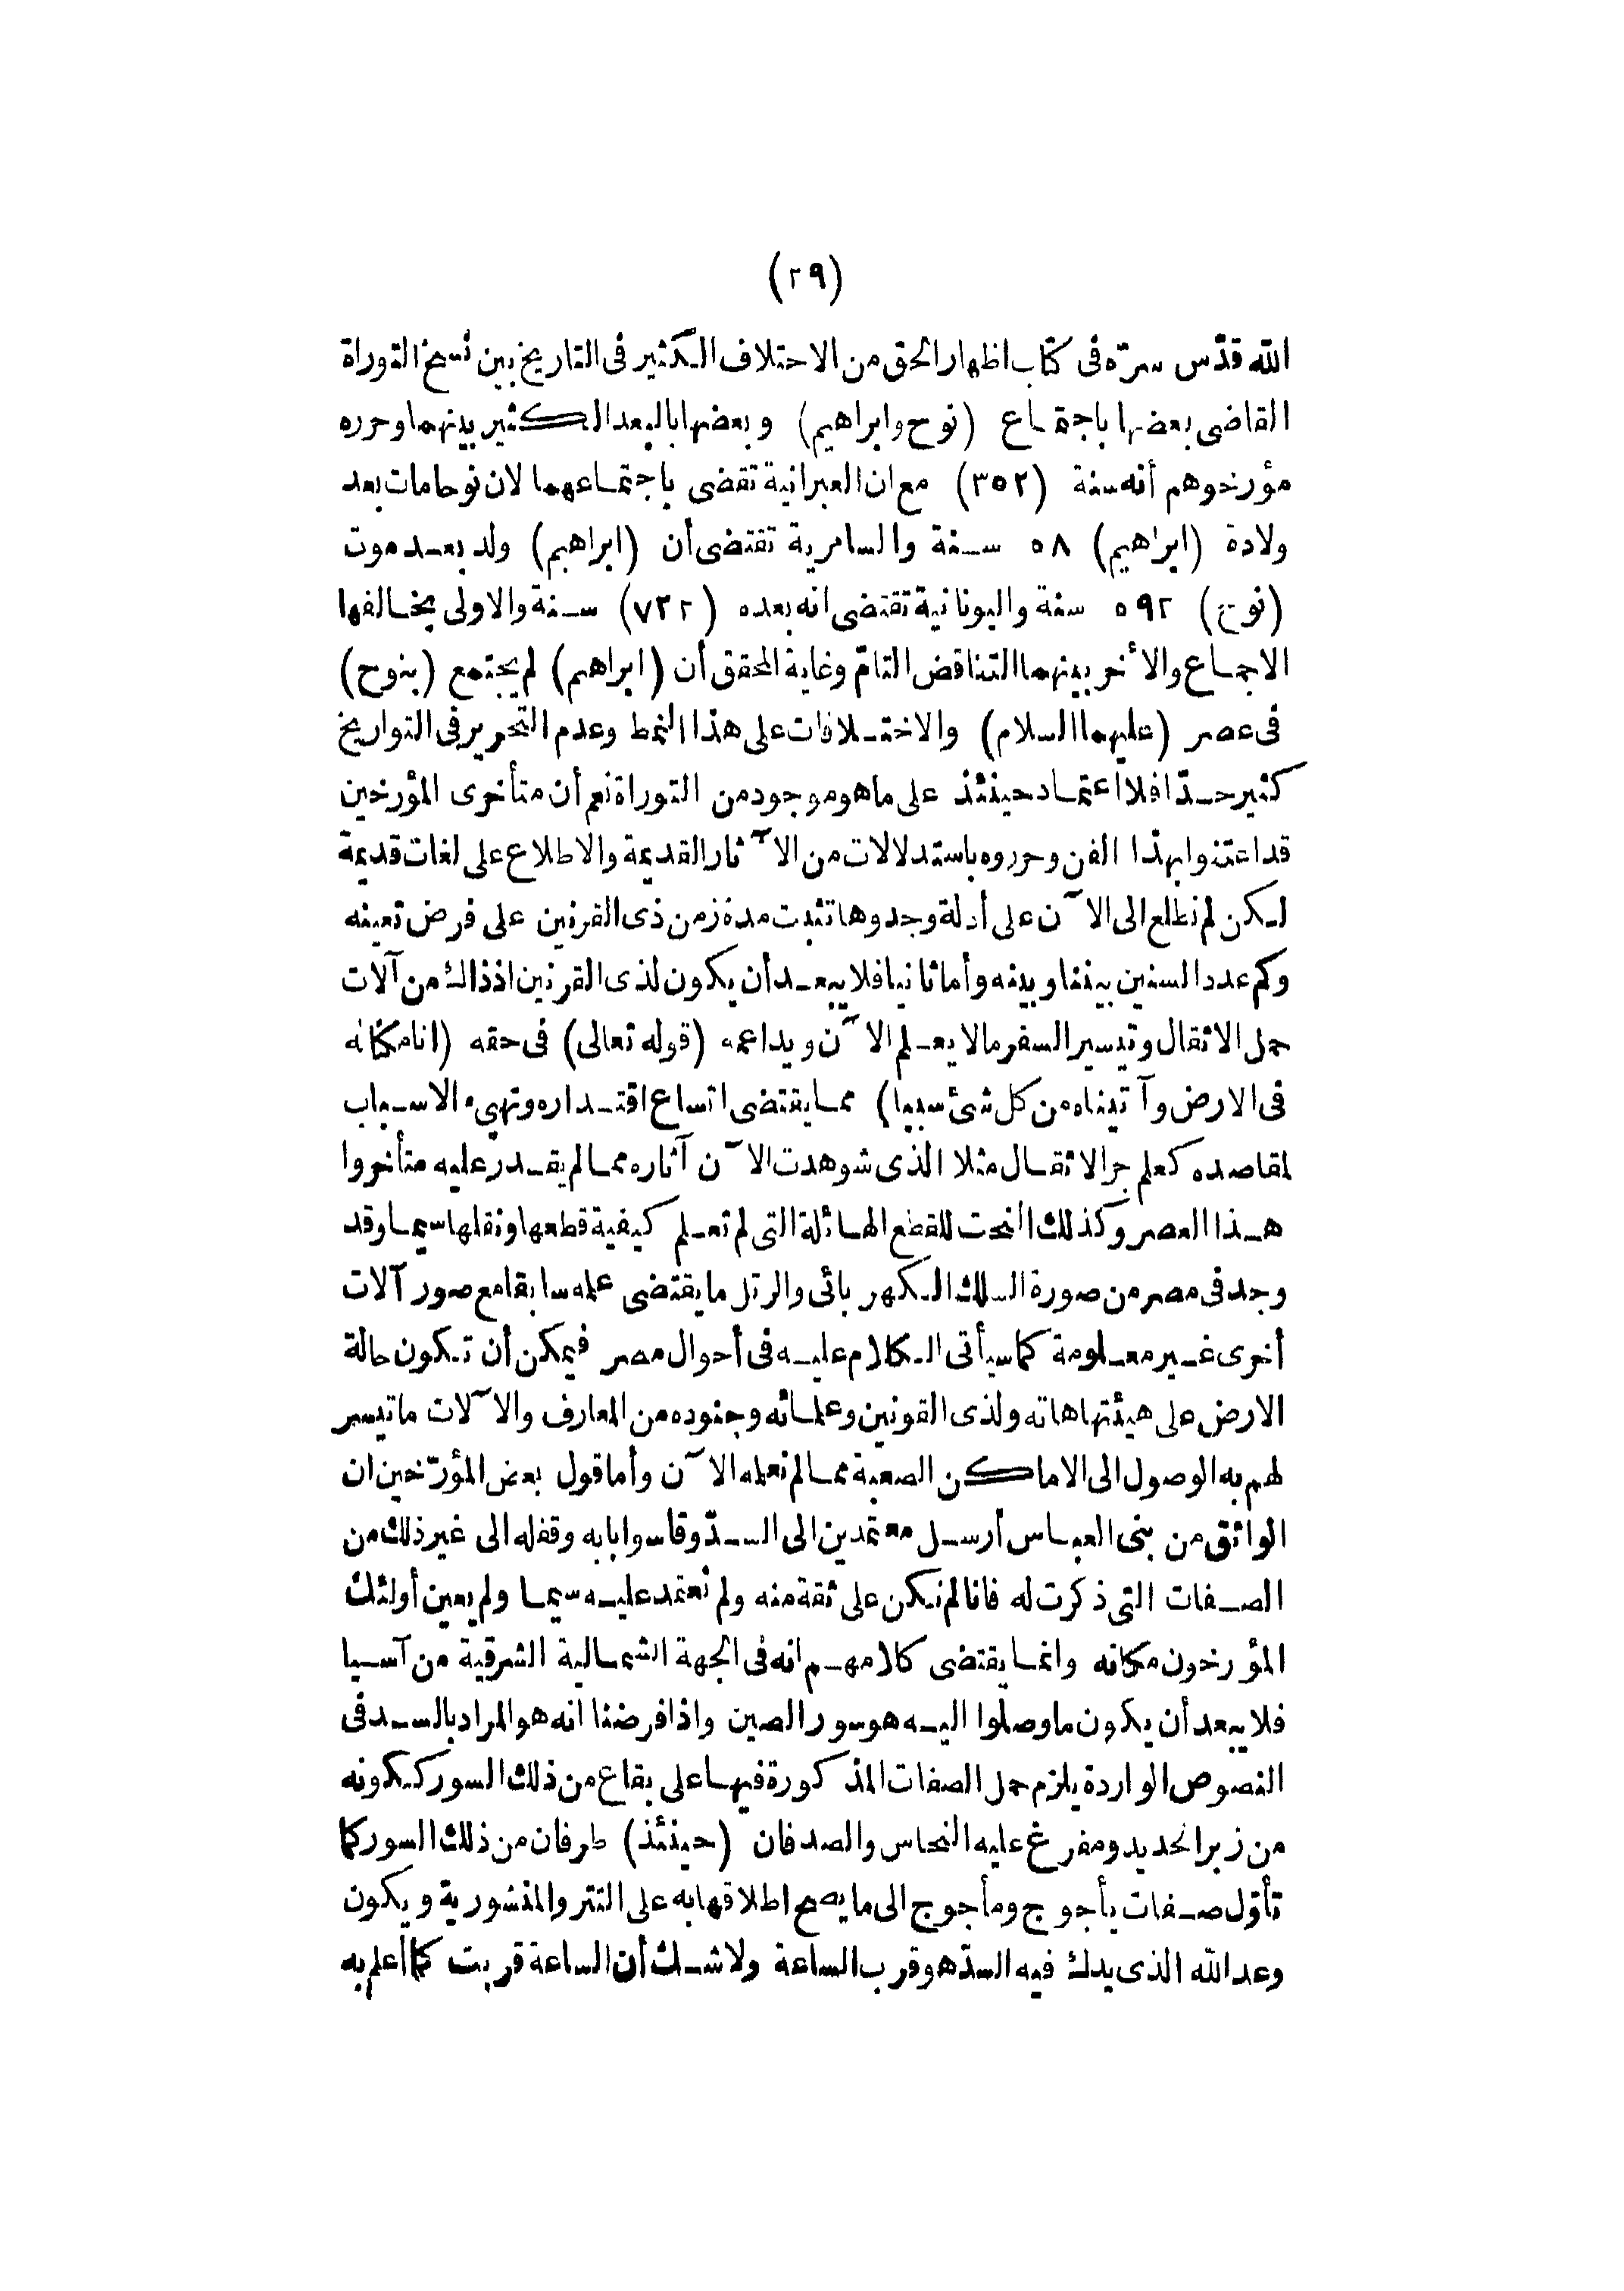 (٢٩)
الله قدّس سرّه فى كتاب اظهار الحق من الاختلاف الكثير فى التاريخ بين نسخ التوراة
القاضى بعضها باجتماع (نوح وابراهيم) وبعضها بالبعد الكثير بينهما وحرره
مؤرخوهم أنه سنة (٣٥٢) مع ان العبرانية تقضى باجتماعهما لان نوحا مات بعد
ولادة (ابراهيم) ٥٨ سنة والسامرية تقتضى أن (ابراهيم) ولد بعد موت
(نوح) ٥٩٢ سنة واليونانية تقتضى انه بعده (٧٢٢) سنة والاولى يخالفها
الاجماع والأخر بينهما التناقض التامّ وغاية المحقق أن (ابراهيم) لم يجتمع (بنوح)
فى عصر (عليهما السلام) والاختلافات على هذا النمط وعدم التحرير فى التواريخ
كثير جدّا فلا اعتماد حينئذ على ما هو موجود من التوراة نعم أن متأخرى المؤرخين
قد اعتنوا بهذا الفن وحرروه باستدلالات من الآثار القديمة والاطلاع على لغات قديمة
لكن لم نطلع الى الآن على أدلة وجدوها تثبت مدة زمن ذى القرنين على فرض تعينه
وكم عدد السنين بيننا وبينه وأما ثانيا فلا يبعد أن يكون لذى القرنين اذ ذاك من آلات
حمل الاثقال وتيسير السفر ما لا يعلم الآن ويداعمه (قوله تعالى) فى حقه (انا مكنا له
فى الارض وآتيناه من كل شئ سببا) مما يقتضى اتساع اقتداره وتهيء الاسباب
لمقاصده كعلم جر الاثقال مثلا الذى شوهدت الآن آثاره مما لم يقدر عليه متأخروا
هذا العصر وكذلك النحت للقطع الهائلة التى لم تعلم كيفية قطعها ونقلها سيما وقد
وجد فى مصر من صورة السلك الكهربائى والرتل ما يقتضى عمله سابقا مع صور آلات
أخرى غير معلومة كما سيأتى الكلام عليه فى أحوال مصر فيمكن أن تكون حالة
الارض على هيئتها هاته ولذى القونين وعلمائه وجنوده من المعارف والآلات ما تيسر
لهم به الوصول الى الاماكن الصعبة مما لم نعلمه الآن وأما قول بعض المؤرّخين ان
الواثق من بنى العباس أرسل معتمدين الى السدّ وقاسوا بابه وقفله الى غير ذلك من
الصفات التى ذكرت له فانا لم نكن على ثقة منه ولم نعتمد عليه سيما ولم يعين أولئك
المؤرخون مكانه وانما يقتضى كلامهم انه فى الجهة الشمالية الشرقية من آسيا
فلا يبعد أن يكون ما وصلوا اليه هو سور الصين واذا فرضنا انه هو المراد بالسد فى
النصوص الواردة يلزم حمل الصفات المذكورة فيها على بقاع من ذلك السور ككونه
من زبر الحديد ومفرغ عليه النحاس والصدفان (حينئذ) طرفان من ذلك السور كما
تأوّل صفات يأجوج ومأجوج الى ما يصح اطلاقها به على التتر والمنشورية ويكون
وعد الله الذى يدك فيه السدّ هو قرب الساعة ولا شك أن الساعة قربت كما أعلم به